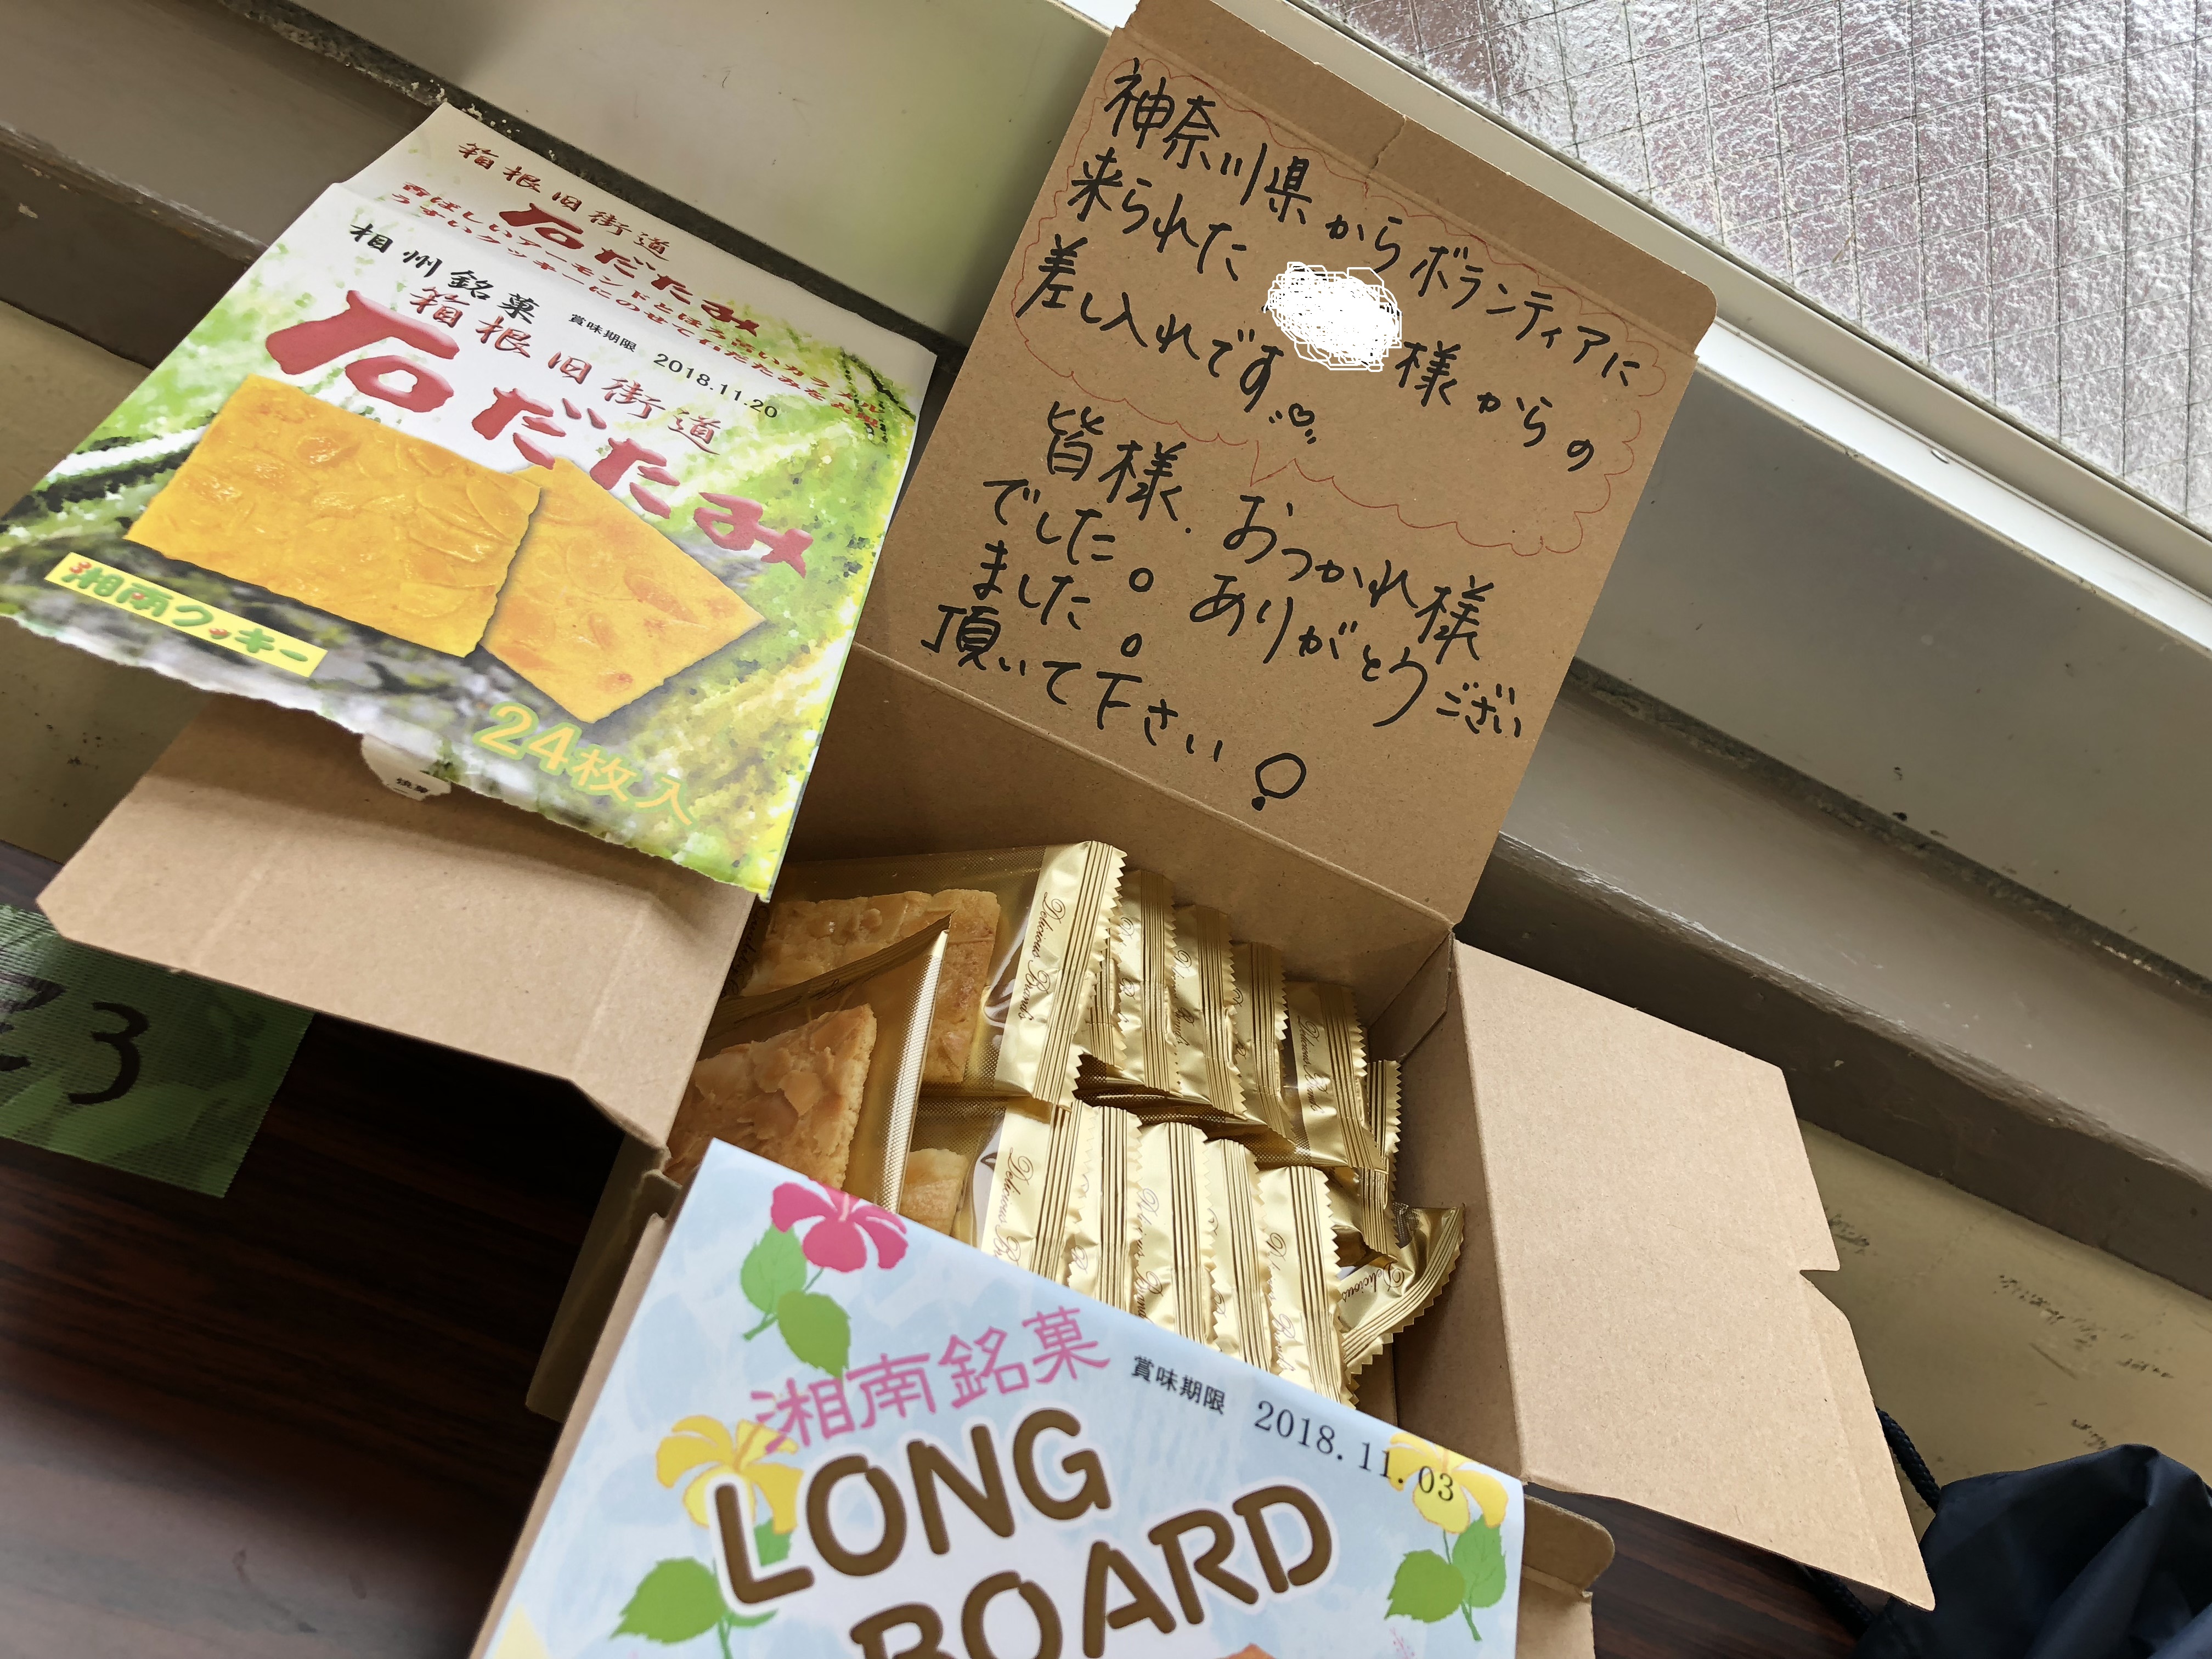 箱根旧街道
石だたみ
香ばしいアーモンドとほろ
うすいクッキーにのせて石だたみを
相州銘菓
賞味期限 2018.11.20
箱根旧街道
石だたみ
湘南クッキー
24枚入
神奈川県からボランティアに
来られた 様からの
差し入れです
皆様、おつかれ様
でした。ありがとうござい
ました。
頂いて下さい
3
Delicious Brands
Delicious Brands
Delicious
湘南銘菓
賞味期限 2018.11.03
LONG
BOARD